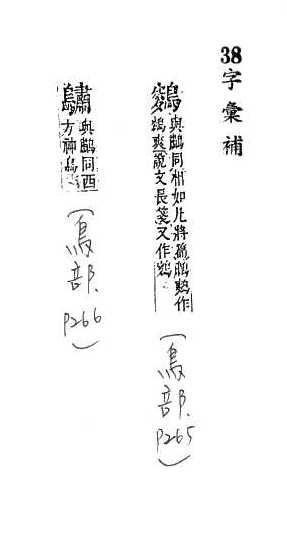 38 字彙補
與鷫同相如凡將篇鷫鷞作
爽說文長箋又作
(鳥部.
P265)
與鷫同西
方神鳥
(鳥部.
P266)